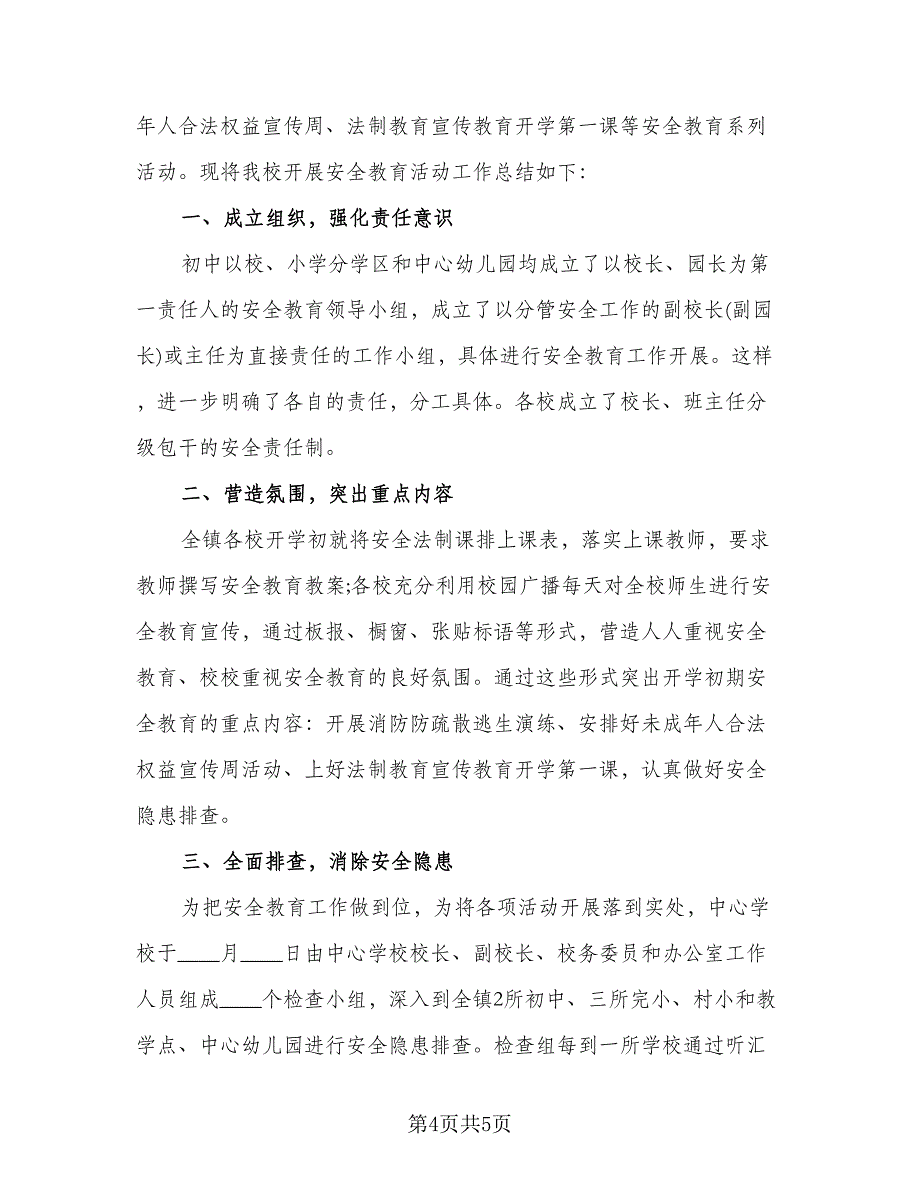 年人合法权益宣传周、法制教育宣传教育开学第一课等安全教育系列
活动。现将我校开展安全教育活动工作总结如下：
一、成立组织，强化责任意识
初中以校、小学分学区和中心幼儿园均成立了以校长、园长为第
一责任人的安全教育领导小组，成立了以分管安全工作的副校长(副园
长)或主任为直接责任的工作小组，具体进行安全教育工作开展。这样
，进一步明确了各自的责任，分工具体。各校成立了校长、班主任分
级包干的安全责任制。
二、营造氛围，突出重点内容
全镇各校开学初就将安全法制课排上课表，落实上课教师，要求
教师撰写安全教育教案;各校充分利用校园广播每天对全校师生进行安
全教育宣传，通过板报、橱窗、张贴标语等形式，营造人人重视安全
教育、校校重视安全教育的良好氛围。通过这些形式突出开学初期安
全教育的重点内容：开展消防防疏散逃生演练、安排好未成年人合法
权益宣传周活动、上好法制教育宣传教育开学第一课，认真做好安全
隐患排查。
三、全面排查，消除安全隐患
为把安全教育工作做到位，为将各项活动开展落到实处，中心学
校于____月____日由中心学校校长、副校长、校务委员和办公室工作
人员组成____个检查小组，深入到全镇2所初中、三所完小、村小和教
学点、中心幼儿园进行安全隐患排查。检查组每到一所学校通过听汇
第4页共5页